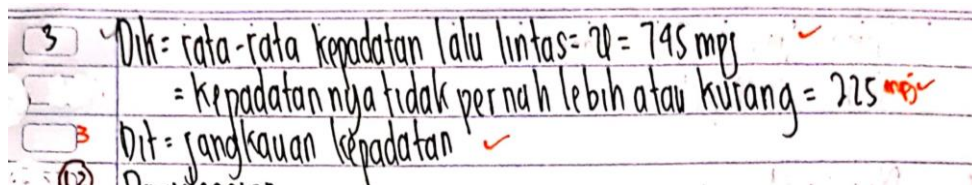 3 Dik = rata-rata kepadatan lalu lintas = v = 745 mpj
= kepadatan nya tidak pernah lebih atau kurang = 225 mpj
3 Dit = jangkauan kepadatan